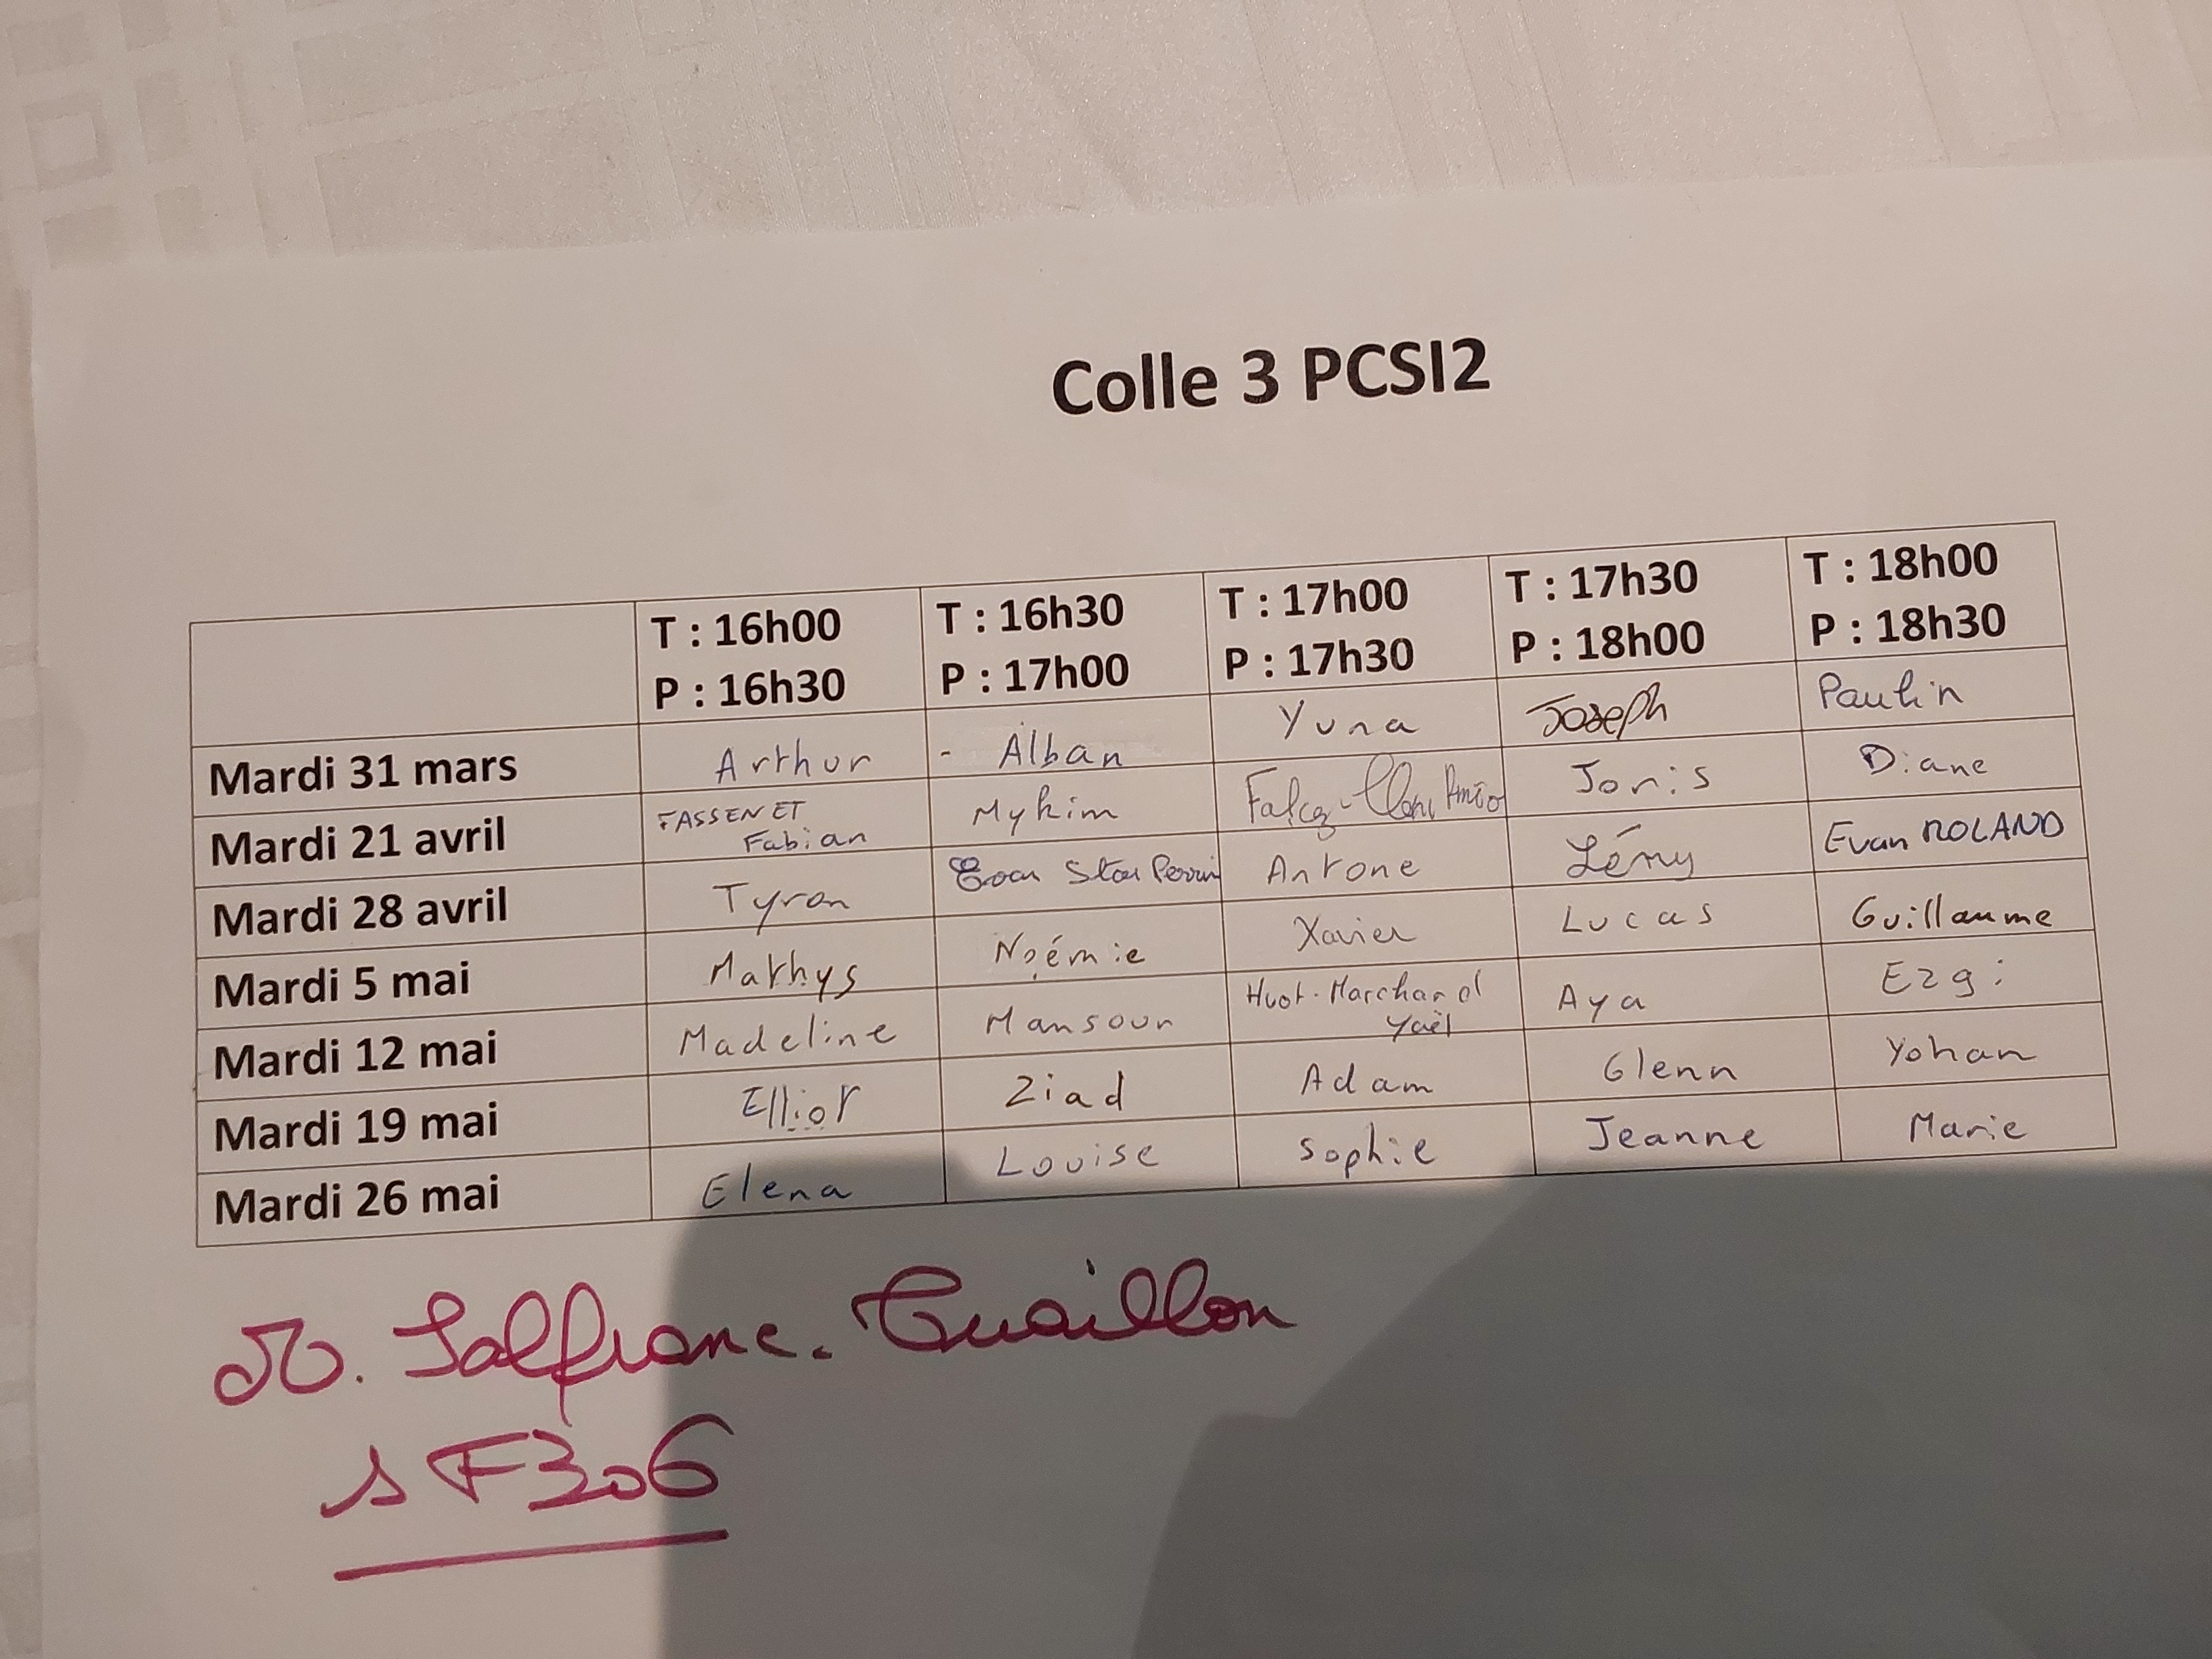 Colle 3 PCSI2
T : 16h00 T : 16h30 T : 17h00 T : 17h30 T : 18h00
P : 16h30 P : 17h00 P : 17h30 P : 18h00 P : 18h30
Mardi 31 mars Arthur - Alban Yuna Joseph Paulin
Mardi 21 avril FASSENET Fabian Mykim Joris Diane
Mardi 28 avril Tyron Antone Lémy Evan ROLAND
Mardi 5 mai Mathys Noémie Xavier Lucas Guillaume
Mardi 12 mai Madeline Mansour Huot-Marchand Yaël Aya Ezgi
Mardi 19 mai Elliot Ziad Adam Glenn Yohan
Mardi 26 mai Elena Louise Sophie Jeanne Marie
M. Salfranc. Tuaillon
s F306